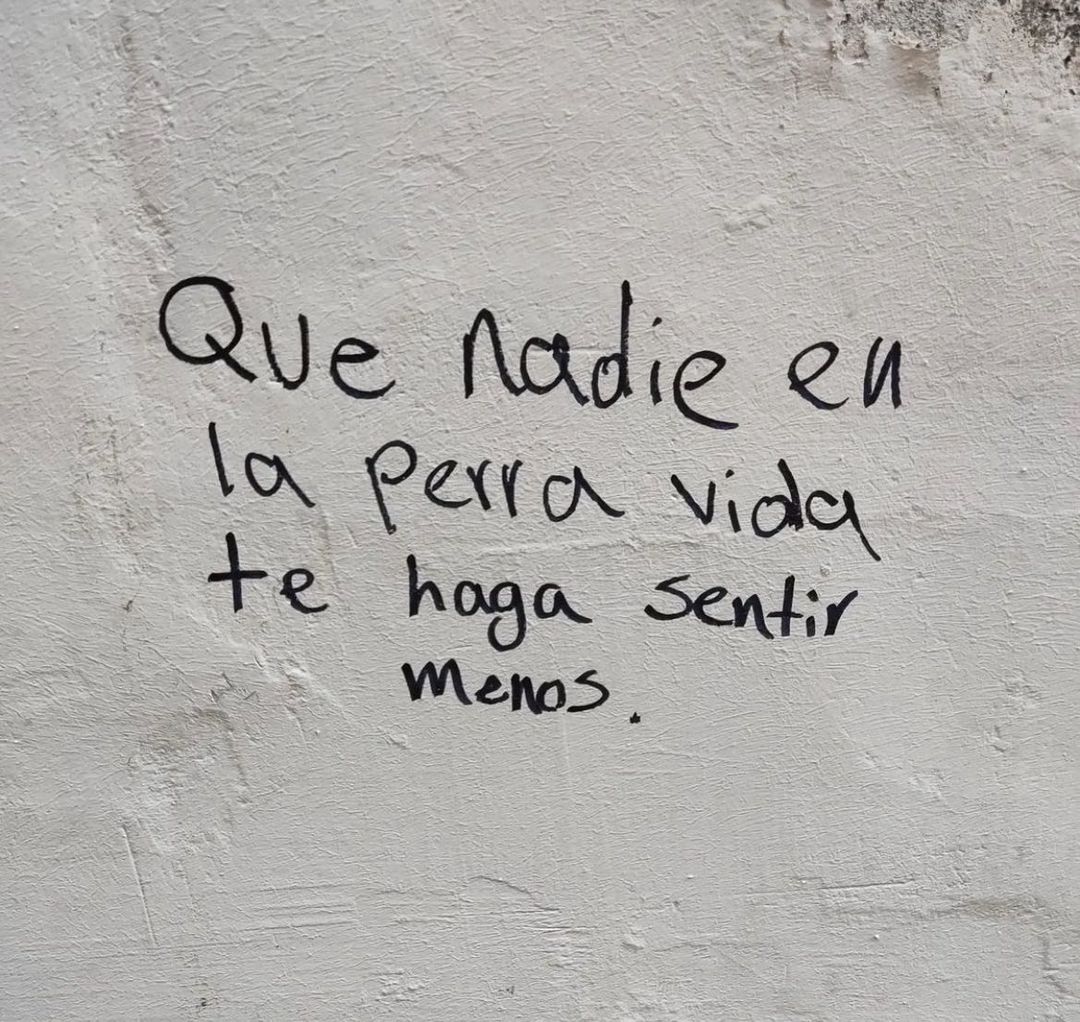 Que nadie en
la perra vida
te haga sentir
menos.